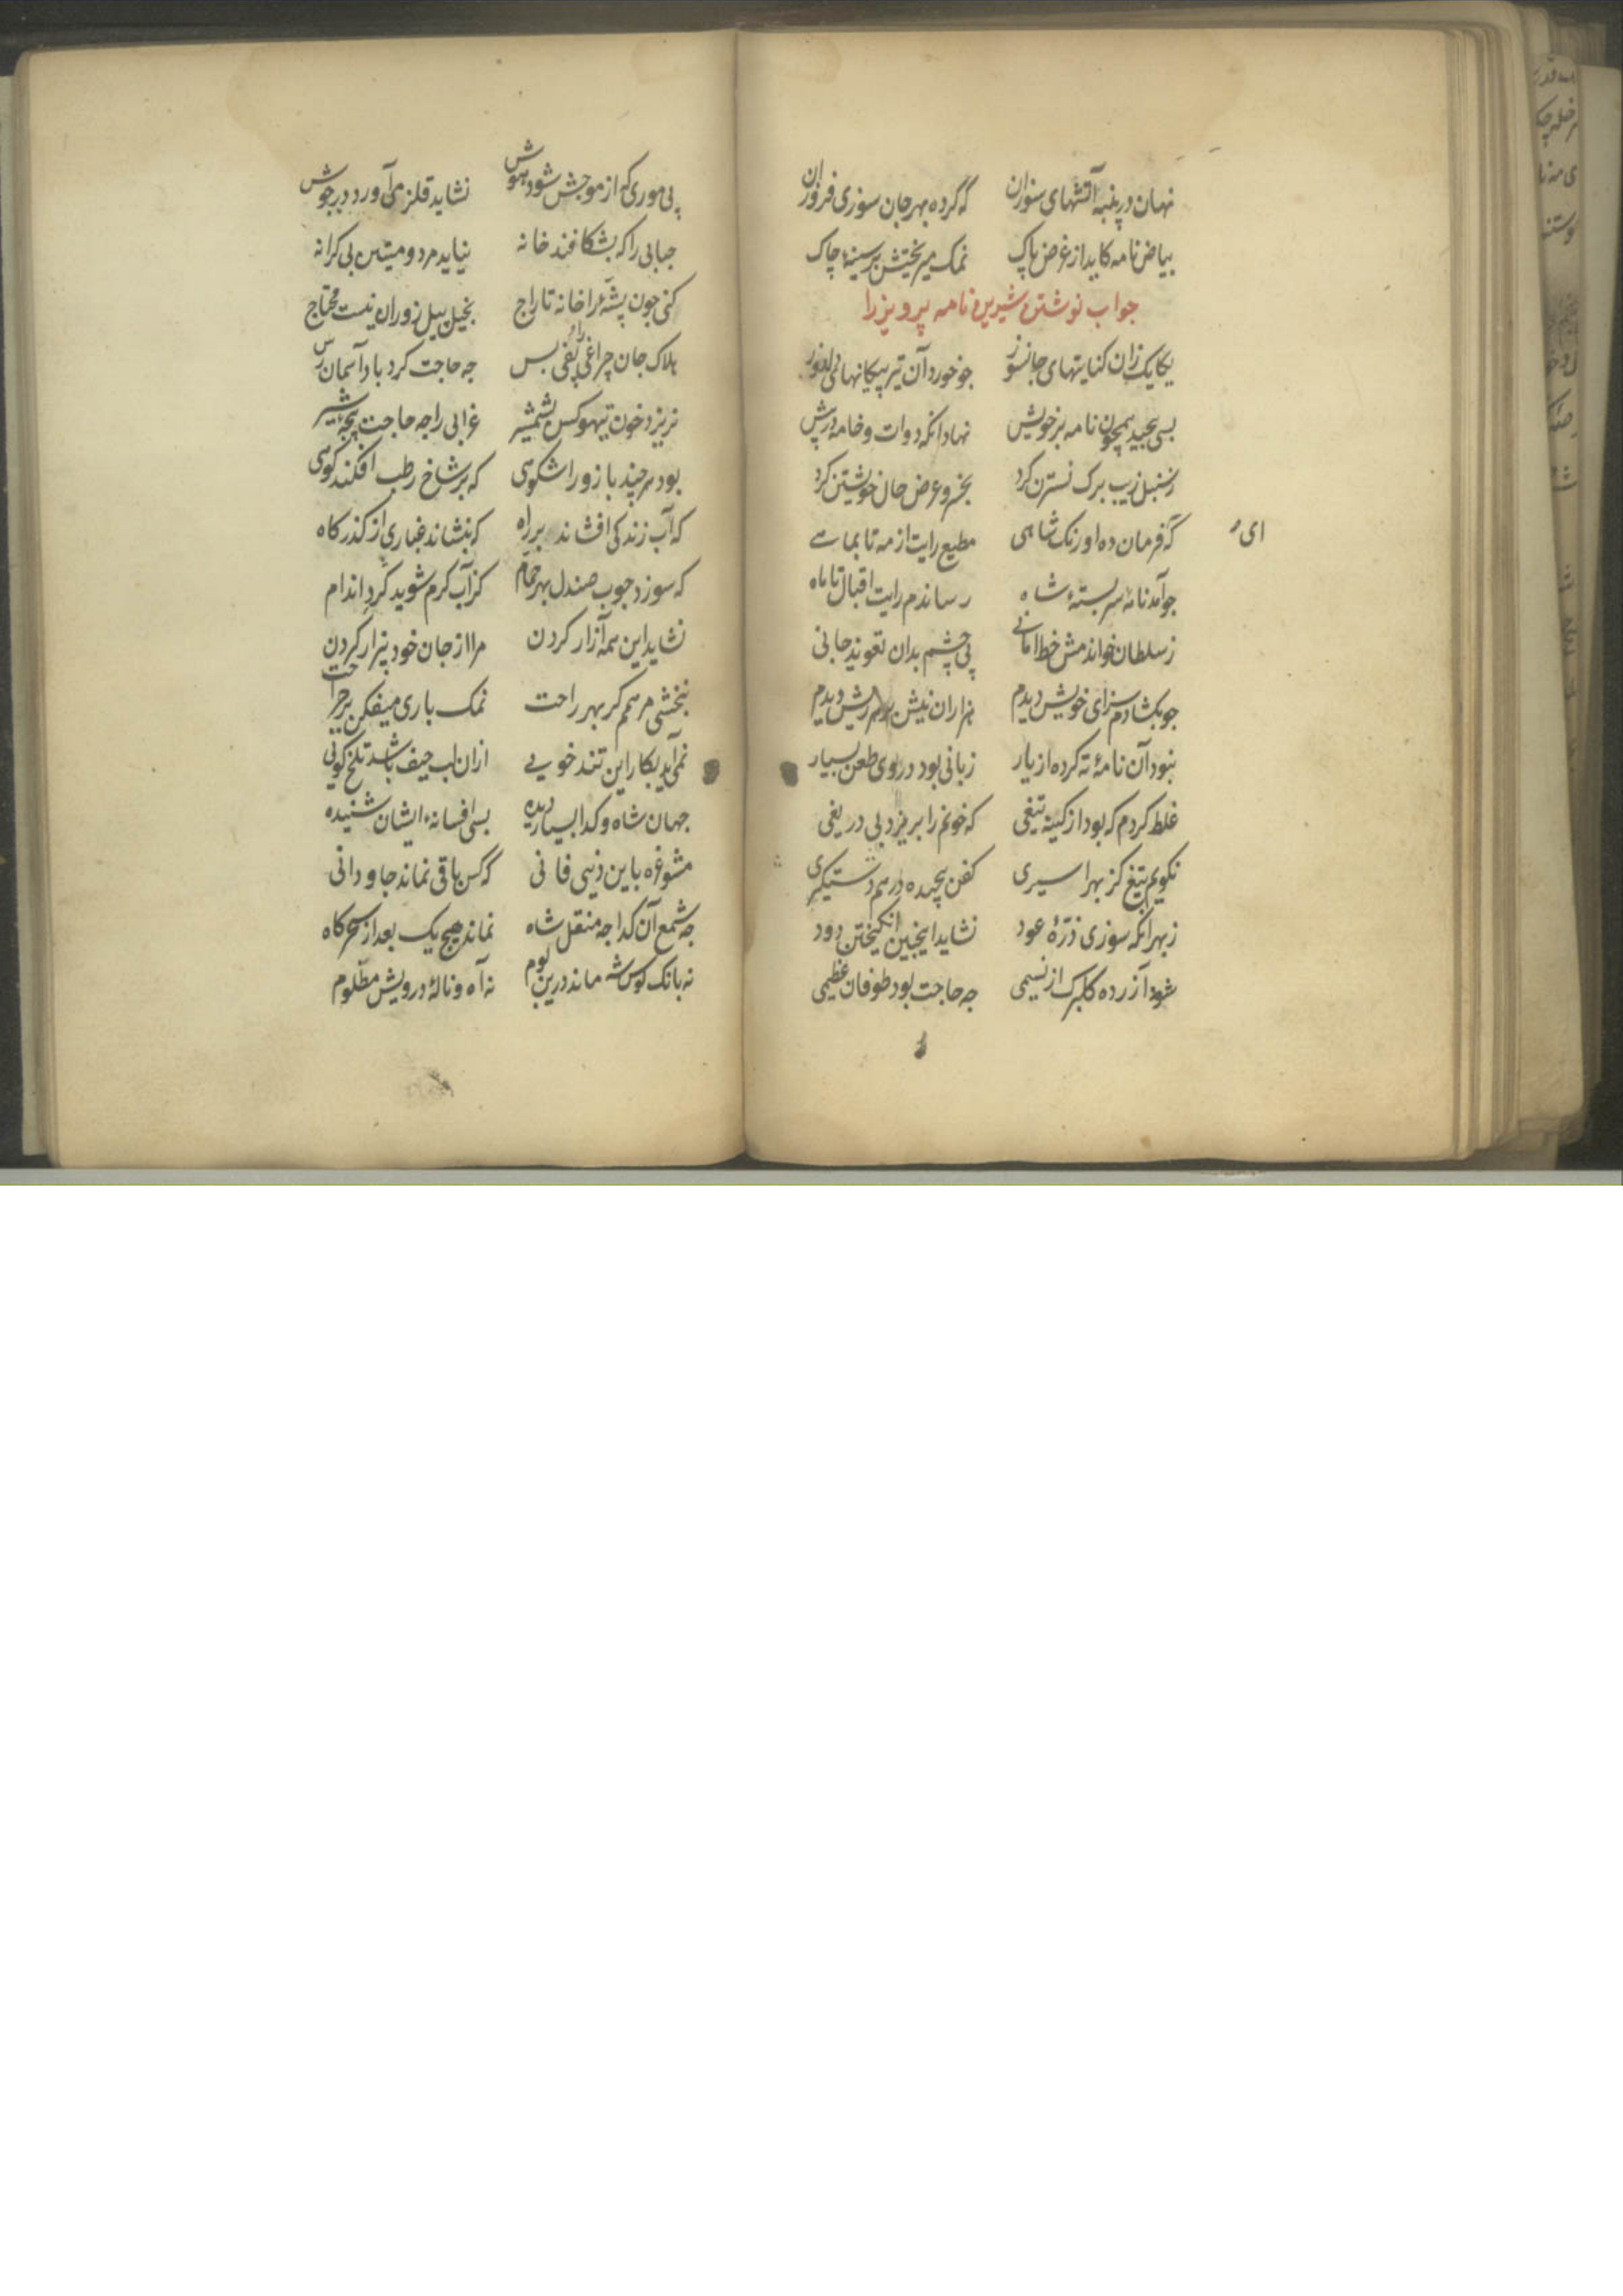 نهان در پنبه آتشهای سوزان که کرده بهر جان سوزی فروزان
بیاض نامه کاید از غرض پاک نمک میریختش بر سینهٔ چاک
جواب نوشتن شیرین نامه پرویز را
یکایک زان کنایتهای جانسوز جو خورد آن تیر پیکانهای دلدوز
بسی پیچید همچون نامه بر خویش نهاد انکه دوات و خامه در پیش
ز سنبل زیب برک نسترن کرد بخسرو عرض حال خویشتن کرد
که فرمان ده اورنک شاهی مطیع رایت از مه تا بماهی
ای
جو آمد نامهٔ سر بستهٔ شاه رساندم رایت اقبال تا ماه
ز سلطان خواندمش خط امانی پی چشم بدان تعویذ جانی
جو بکشادم سزای خویش دیدم هزاران نیش بر هر ریش دیدم
نبود آن نامهٔ ته کرده از یار زبانی بود در وی طعن بسیار
غلط کردم که بود از کینه تیغی که خونم را بریزد بی دریغی
نکویم تیغ کز بهر اسیری کفن پیچیده در هم دستیکری
ز بهر انکه سوزی ذرهٔ عود نشاید اینچنین انکیختن دود
شود آزرده کلبرک از نسیمی جه حاجت بود طوفان عظیمی
پی موری که از موجش شود هوش نشاید قلزمی آورد در جوش
حبابی را که بشکافند خانه نیاید مرد و میتین بی کرانه
کنی جون پشهٔ را خانه تاراج بخیل پیل زوران نیست محتاج
هلاک جان چراغی را پفی بس جه حاجت کرد باد آسمان رس
نریزد خون تیهو کس بشمشیر غرابی را جه حاجت پنجهٔ شیر
بود هر چند بازو را شکوهی که بر شاخ رطب افکند کوهی
که آب زندکی افشاند بر راه که بنشاند غباری از کذرکاه
که سوزد جوب صندل بهر حمام کز آب کرم شوید کرد اندام
نشاید این همه آزار کردن مرا از جان خود بیزار کردن
نبخشی مرهمم کر بهر راحت نمک باری میفکن بر جراحت
نمی‌آید بکار این تند خویی از ان لب حیف باشد تلخ کویی
جهان شاه و کدا بسیار دیده بسی افسانهٔ ایشان شنیده
مشو غره باین دنیی فانی که کس باقی نماند جاودانی
جه شمع آن کدا جه منقل شاه نماند هیچ یک بعد از سحرکاه
نه بانک کوس شه ماند درین بوم نه آه و نالهٔ درویش مظلوم